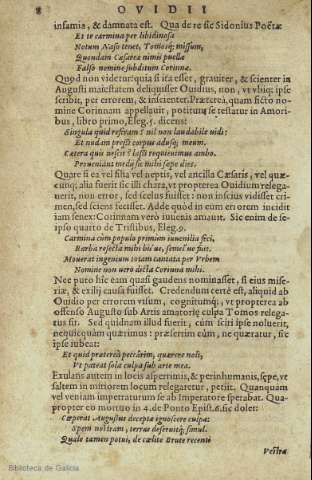 8 OVIDII
infamis, & damnata est. Qua de re sic Sidonius Poëta
Et te carmina per libidinosa
Notum Naso tenet, Tomosq; missum,
Quondam Cæsarea nimis puellæ
Falso nomine subditum Corinnæ.
Quod non videtur: quia si ita esset, grauiter, & scienter in
Augusti maiestatem deliquisset Ouidius, non, vt vbiq; ipse
scribit, per errorem, & inscienter. Præterea, quam ficto no-
mine Corinnam appellauit, potitum se testatur in Amori-
bus, libro primo, Eleg. 5. dicens:
Singula quid referam? nil non laudabile vidi:
Et nudam pressi corpus adusq; meum.
Cætera quis nescit? lassi requieuimus ambo.
Proueniant medij sic mihi sæpe dies.
Quare si ea vel filia vel neptis, vel ancilla Cæsaris, vel quæ-
cunq; alia fuerit sic illi chara, vt propterea Ouidium relega-
uerit, non error, sed scelus fuisset: non inscius vidisset cri-
men, sed sciens fecisset. Adde quod in eum errorem incidit
iam senex: Corinnam verò iuuenis amauit. Sic enim de se-
ipso quarto de Tristibus, Eleg. 9.
Carmina cùm populo primùm iuuenilia feci,
Barba resecta mihi bis ue, semel ue fuit.
Mouerat ingenium totam cantata per Vrbem
Nomine non vero dicta Corinna mihi.
Nec puto hîc eam quasi gaudens nominasset, si eius mise-
riæ, & exilij causa fuisset. Credendum certè est, aliquid ab
Ouidio per errorem visum, cognitumq; vt propterea ab
offenso Augusto sub Artis amatoriæ culpa Tomos relega-
tus sit. Sed quidnam illud fuerit, cùm sciri ipse noluerit,
nequicquam quærimus: præsertim cùm, ne quæratur, sic
ipse iubeat:
Et quid præterea peccârim, quærere noli,
Vt pateat sola culpa sub arte mea.
Exulans autem in locis asperrimis, & perinhumanis, sæpe, vt
saltem in mitiorem locum relegaretur, petijt. Quanquam
vel veniam impetraturum se ab Imperatore sperabat. Qua-
propter eo mortuo in 4. de Ponto Epist. 6. sic dolet:
Cœperat Augustus deceptæ ignoscere culpæ:
Spem nostram, terras deseruitq; simul.
Quale tamen potui, de cælite Brute recenti
Vestra
Biblioteca de Galicia